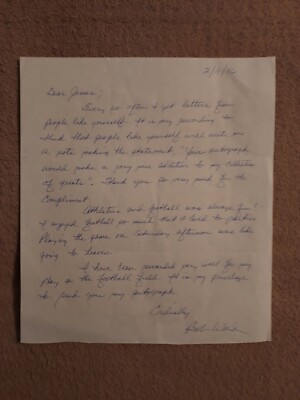 Dear James,
Every so often I get letters from
people like yourself. It is very rewarding to
think that people like yourself will write me
a note making the statement, "Your autograph
would make a very nice addition to my collection
of greats". Thank you so very much for the
Compliment.
Athletics and football was always fun!
I enjoyed football so much that I loved to practice.
Playing the game on Saturday afternoon was like
going to heaven.
I have been rewarded very well for my
play on the football field. It is my privilege
to send you my autograph.
Cordially
Bob